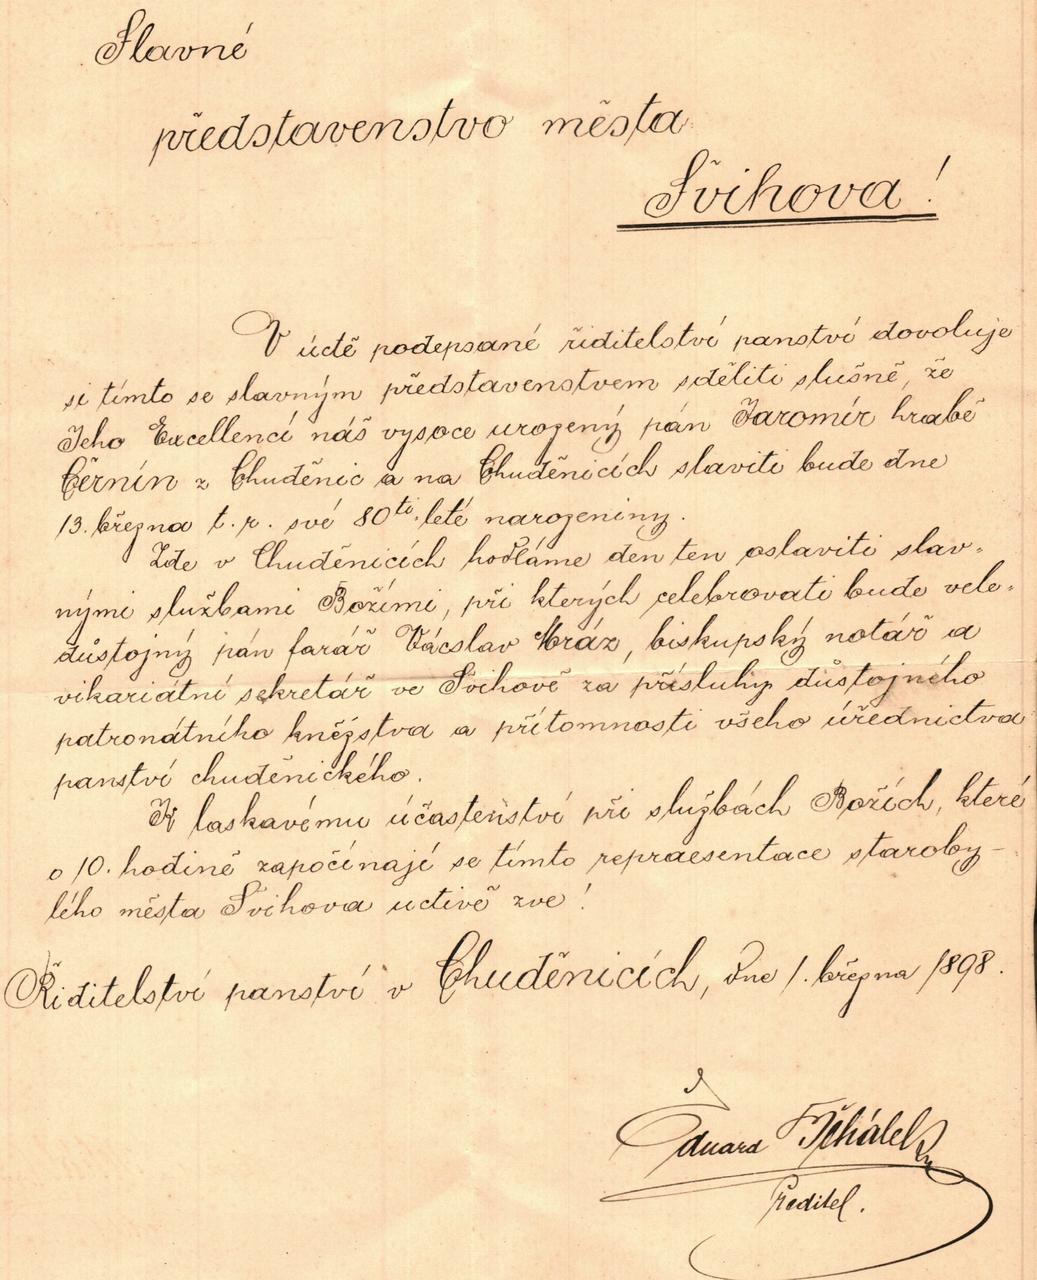 Slavné
představenstvo města
Švihova!
V úctě podepsané řiditelství panství dovoluje
si tímto se slavným představenstvem sděliti slušně, že
Jeho Excellencí náš vysoce urozený pán Jaromír hrabě
Černín z Chuděnic a na Chuděnicích slaviti bude dne
13. března t. r. své 80ti leté narozeniny.
Zde v Chuděnicích hodláme den ten oslaviti slav-
nými službami Božími, při kterých celebrovati bude vele-
důstojný pán farář Václav Mráz, biskupský notář a
vikariátní sekretář ve Švihově za přísluhy důstojného
patronátního kněžstva a přítomnosti všeho úřednictva
panství chuděnického.
K laskavému účastenství při službách Božích, které
o 10. hodině započínají se tímto repraesentace staroby-
lého města Švihova uctivě zve!
Řiditelství panství v Chuděnicích, dne 1. března 1898.
Eduard
ředitel.